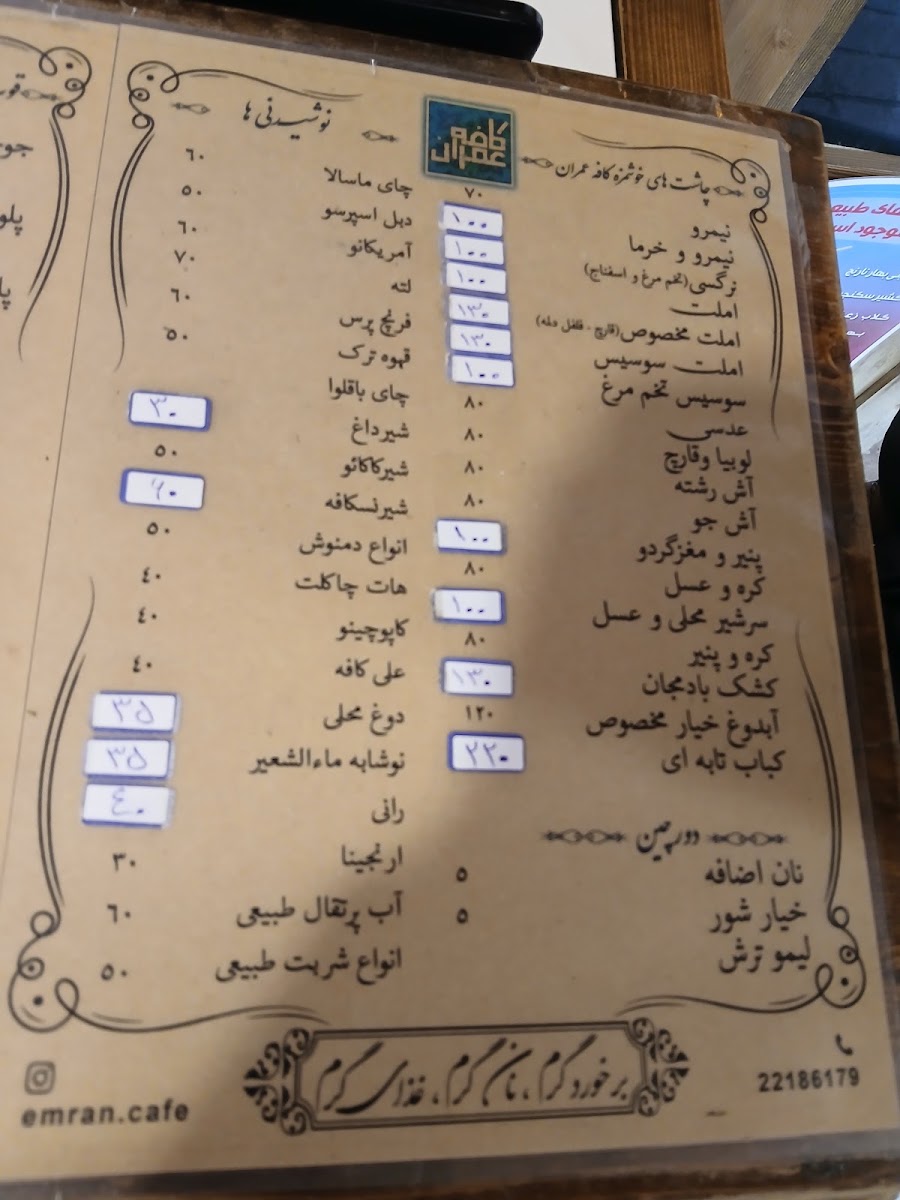 چاشت های خوشمزه کافه عمران
کافه
عمران
نیمرو ۷۰
نیمرو و خرما ۱۰۰
نرگسی(تخم مرغ و اسفناج) ۱۰۰
املت ۱۰۰
املت مخصوص(قارچ - فلفل دلمه) ۱۳۰
املت سوسیس ۱۳۰
سوسیس تخم مرغ ۱۰۰
عدسی ۸۰
لوبیا وقارچ ۸۰
آش رشته ۸۰
آش جو ۸۰
پنیر و مغزگردو ۱۰۰
کره و عسل ۸۰
سرشیر محلی و عسل ۱۰۰
کره و پنیر ۸۰
کشک بادمجان ۱۳۰
آبدوغ خیار مخصوص ۱۲۰
کباب تابه ای ۲۲۰
دورچین
نان اضافه ۵
خیار شور ۵
لیمو ترش
نوشیدنی ها
چای ماسالا ۶۰
دبل اسپرسو ۵۰
آمریکانو ۶۰
لته ۷۰
فرنچ پرس ۶۰
قهوه ترک ۵۰
چای باقلوا
شیرداغ ۳۰
شیرکاکائو ۵۰
شیرنسکافه ۶۰
انواع دمنوش ۵۰
هات چاکلت ۴۰
کاپوچینو ۴۰
علی کافه ۴۰
دوغ محلی ۳۵
نوشابه ماءالشعیر ۳۵
رانی ۴۰
ارنجینا ۳۰
آب پرتقال طبیعی ۶۰
انواع شربت طبیعی ۵۰
برخورد گرم ، نان گرم ، غذای گرم
22186179
emran.cafe